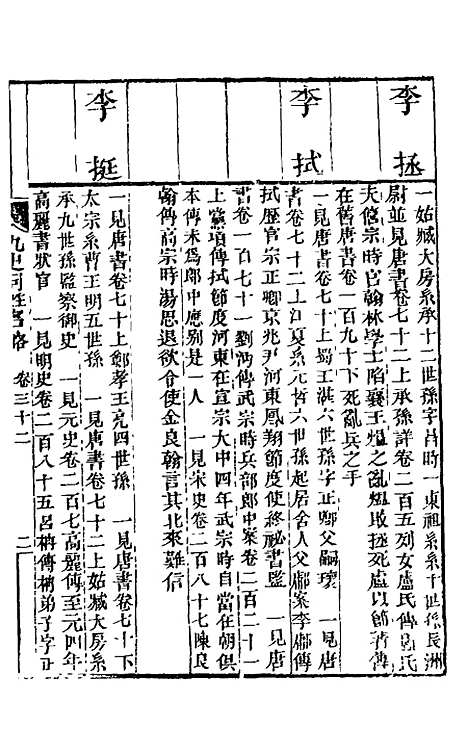 李拯
一姑臧大房系承十二世孫字昌時一東祖系系十世孫長洲
尉並見唐書卷七十二上承孫詳卷二百五列女盧氏傳盧氏
夫僖宗時官翰林學士陷襄王熅之亂熅敗拯死盧以節著傳
在舊唐書卷一百九十下死亂兵之手
李拭
一見唐書卷七十上蜀王湛六世孫字正卿父嗣瓌 一見唐
書卷七十二上江夏系元哲六世孫起居舍人父鄘案李鄘傳
拭歷官宗正卿京兆尹河東鳳翔節度使終祕書監 一見唐
書卷一百七十一劉沔傳武宗時兵部郎中案卷二百二十一
上黨項傳拭節度河東在宣宗大中四年武宗時自當在朝俱
本傳未爲郎中應別是一人 一見宋史卷二百八十七陳良
翰傳高宗時湯思退欲令使金良翰言其北來難信
李挺
一見唐書卷七十上鄭孝王亮四世孫 一見唐書卷七十下
太宗系曹王明五世孫 一見唐書卷七十二上姑臧大房系
承九世孫監察御史 一見元史卷二百七高麗傳至元四年
高麗書狀官 一見明史卷二百八十五呂柟傳柟弟子字正
九史同姓名略 卷三十二 二